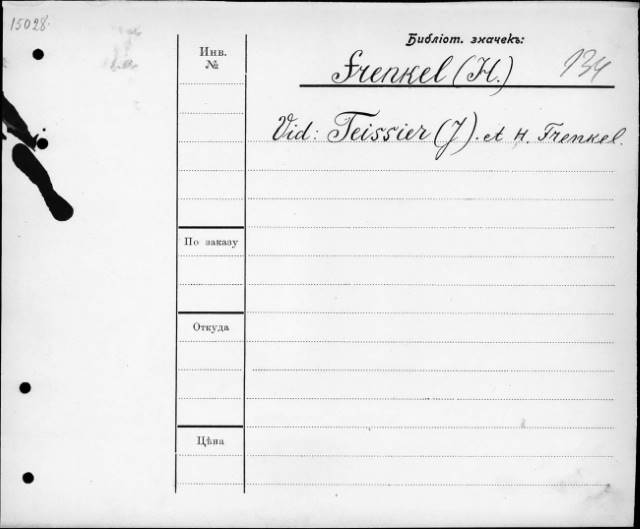 15028.
Библіот. значекъ:
Инв.
№
Frenkel (H.) 134
Vid: Teissier (J). et H. Frenkel.
По заказу
Откуда
Цѣна